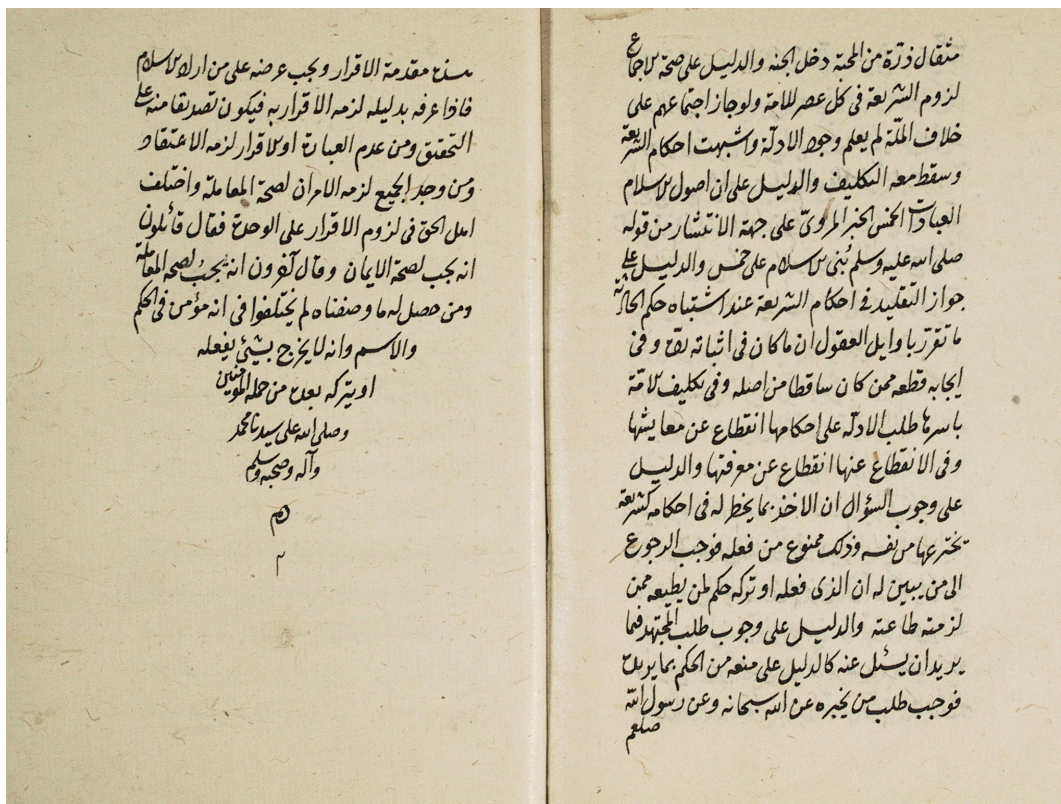 مثقال ذرة من المحبة دخل الجنه والدليل على صحة الاجماع
لزوم الشريعة فى كل عصر للامة ولو جاز اجتماعهم على
خلاف الملّة لم يعلم وجوه الادلّة واشبهت احكام الشريعة
وسقط معه التكليف والدليل على ان اصول الاسلام
العبادات الخمس الخبر المروىّ على جهة الانتشار من قوله
صلى الله عليه وسلم بُنى الاسلام على خمس والدليل على
جواز التقليد فى احكام الشريعة عند اشتباه حكم الحادثة
ما تقرّر باوايل العقول ان ما كان فى اثباته نفيه وفى
ايجابه قطعه ممن كان ساقطا من اصله وفى تكليف الامّة
باسرها طلب الادلّة على احكامها انقطاع عن معايشها
وفى الانقطاع عنها انقطاع عن معرفتها والدليل
على وجوب السؤال ان الاخذ بما يخطر له فى احكامه كشريعة
يخترعها من نفسه وذلك ممنوع من فعله فوجب الرجوع
الى من يبين له ان الذى فعله او تركه حكم لمن يطيعه ممن
لزمته طاعته والدليل على وجوب طلب المجتهد فيما
يريد ان يسئل عنه كالدليل على منعه من الحكم بما يريده
فوجب طلب من يخبره عن الله سبحانه وعن رسول الله
صلعم
مقدمة الاقرار ويجب عرضه على من اراد الاسلام
فاذا عرفه بدليله لزمه الاقرار به فيكون تصديقا منه على
التحقيق ومن عدم العبارة او الاقرار لزمه الاعتقاد
ومن وجد الجميع لزمه الامران لصحة المعاملة واختلف
اهل الحق فى لزوم الاقرار على الوحدة فقال قائلون
انه يجب لصحة الايمان وقال آخرون انه يجب لصحة المعاملة
ومن حصل له ما وصفناه لم يختلفوا فى انه مؤمن فى الحكم
والاسم وانه لا يخرج بشئ يفعله
او يتركه بعده من جملة المؤمنين
وصلى الله على سيدنا محمد
وآله وصحبه وسلم
م